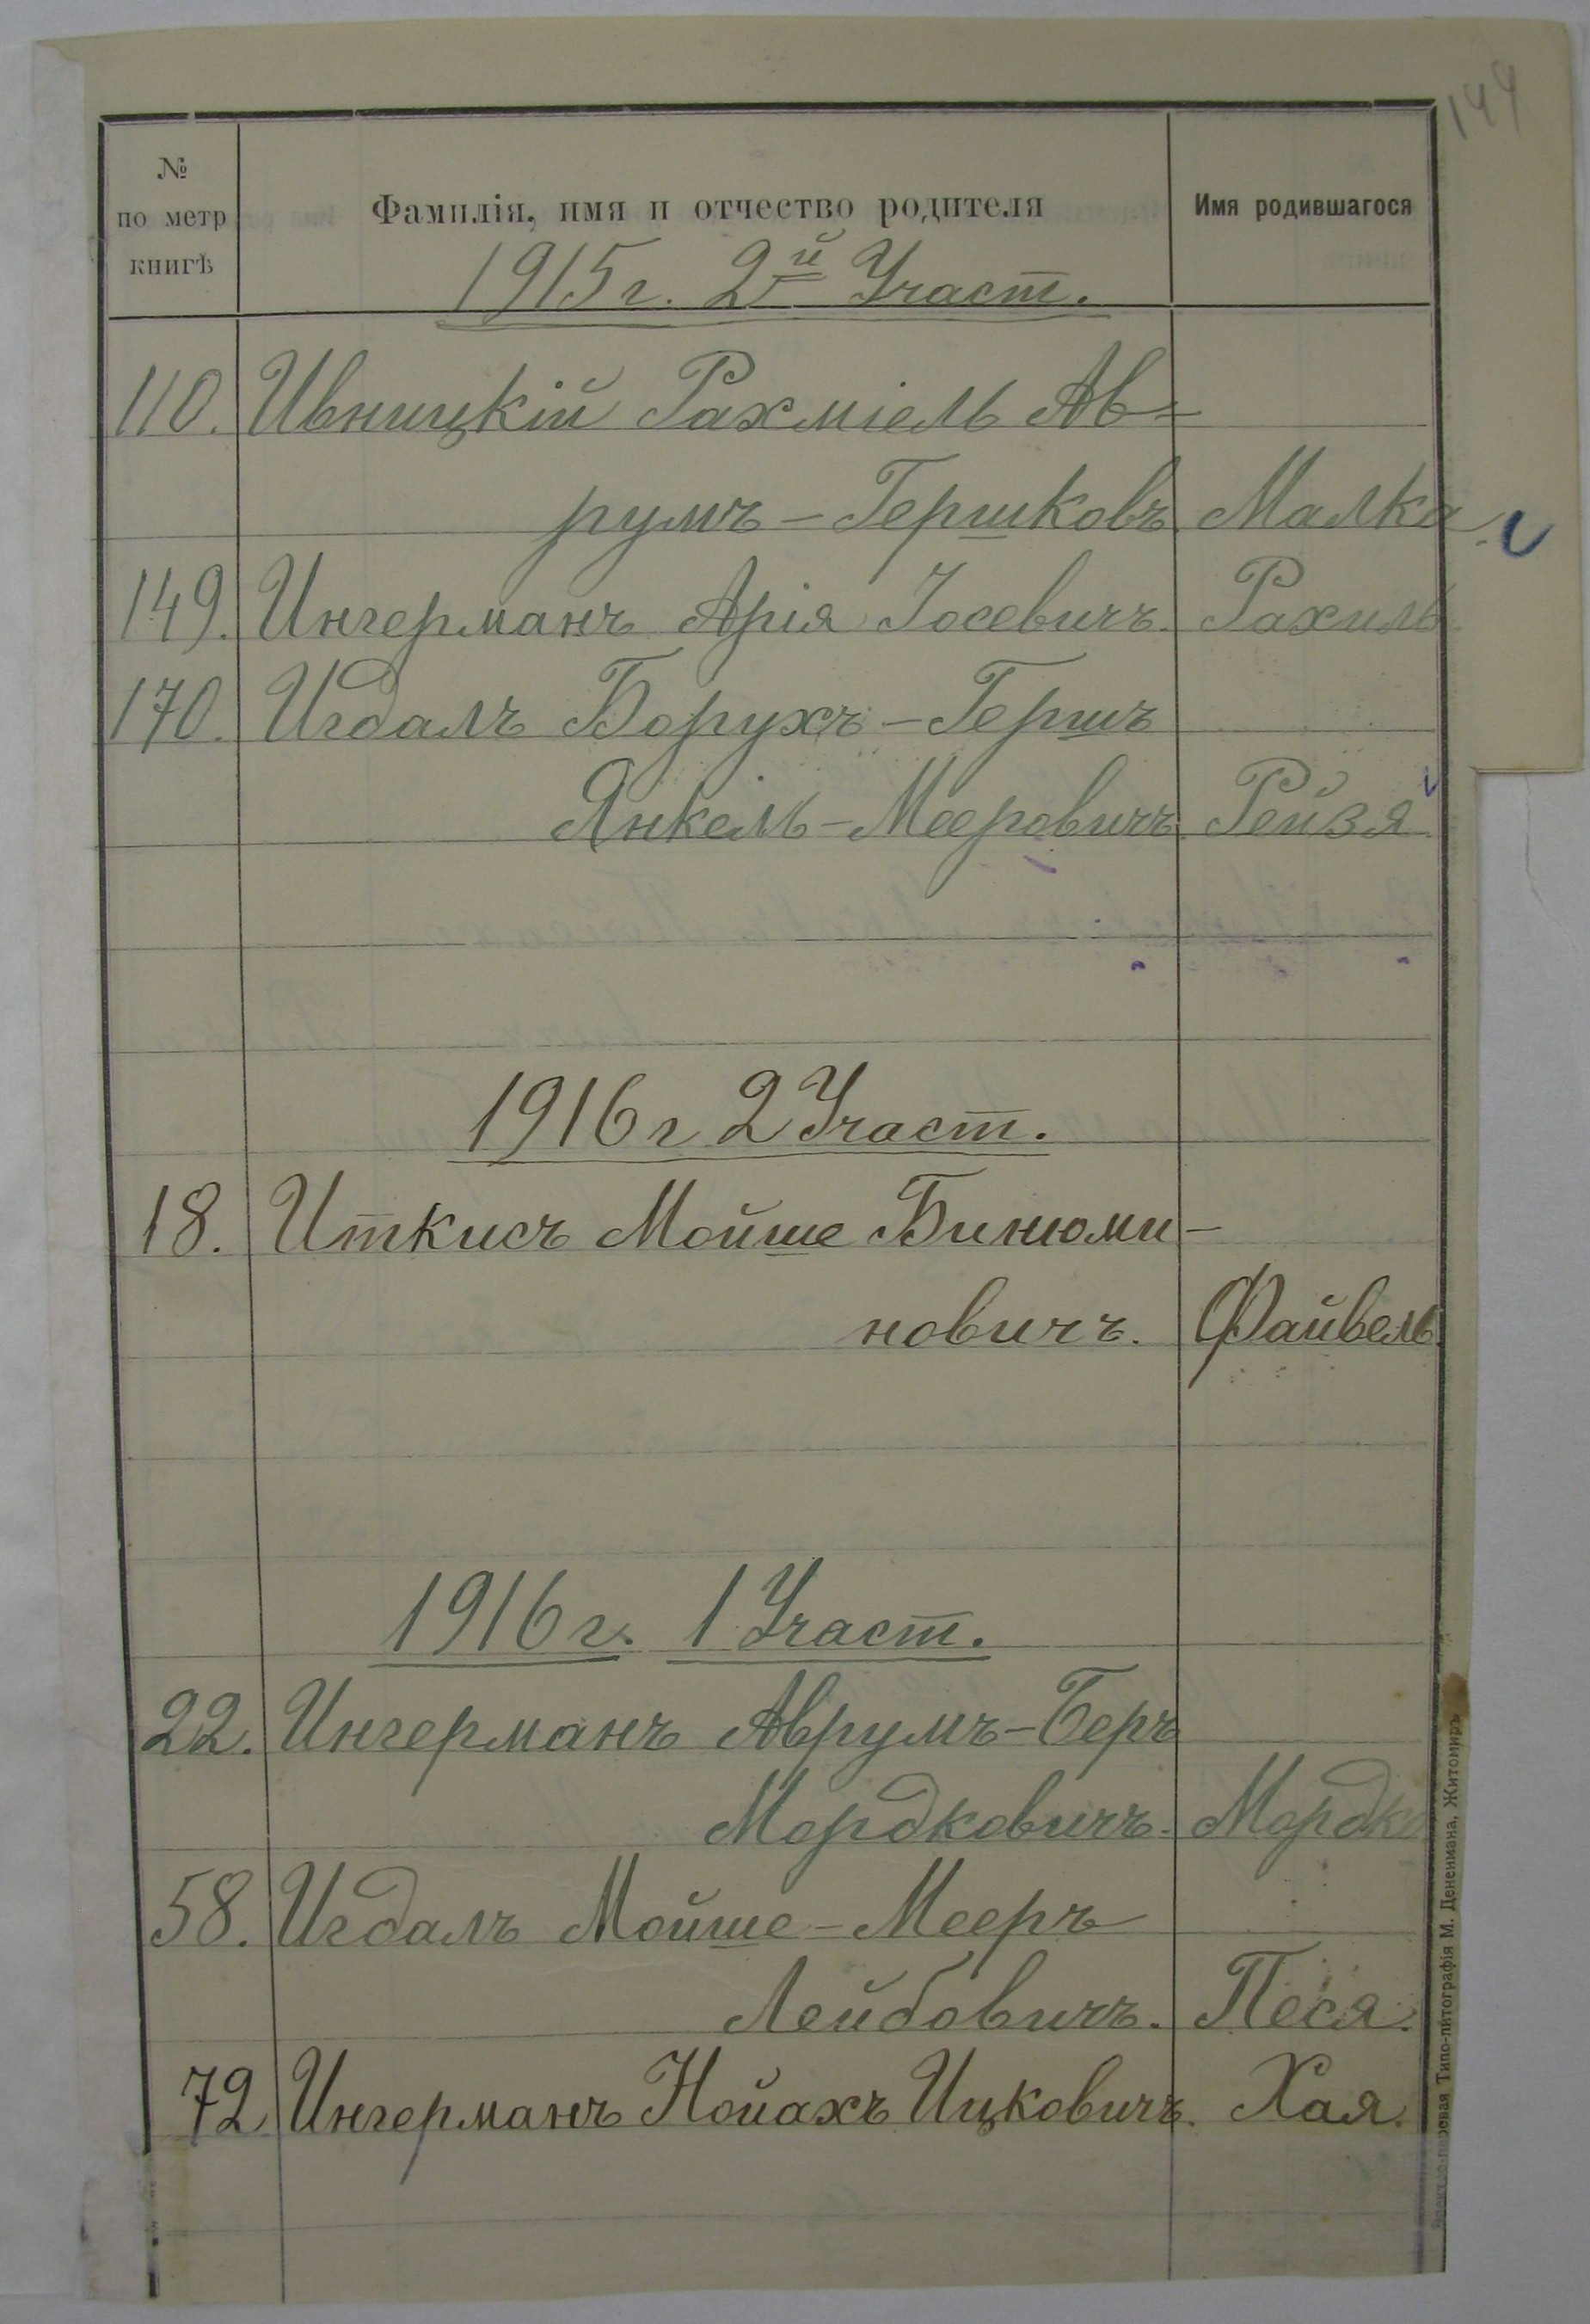 149
№
по метр
книгѣ
Фамилія, имя и отчество родителя
Имя родившагося
1915 г. 2й Участ.
110. Ивницкій Рахміель Ав=
румъ-Гершковъ Малка.
149. Ингерманъ Арія Іосевичъ. Рахиль
170. Игдалъ Борухъ-Гершъ
Янкель-Мееровичъ. Рейзя.
1916 г 2 Участ.
18. Иткисъ Мойше Бинюми-
новичъ. Файвель.
1916 г. 1 Участ.
22. Ингерманъ Аврумъ-Беръ
Мордковичъ. Мордко
58. Игдалъ Мойше-Мееръ
Лейбовичъ. Песя.
72. Ингерманъ Нойахъ Ицковичъ. Хая.
Типо-литографія М. Дененмана, Житомиръ